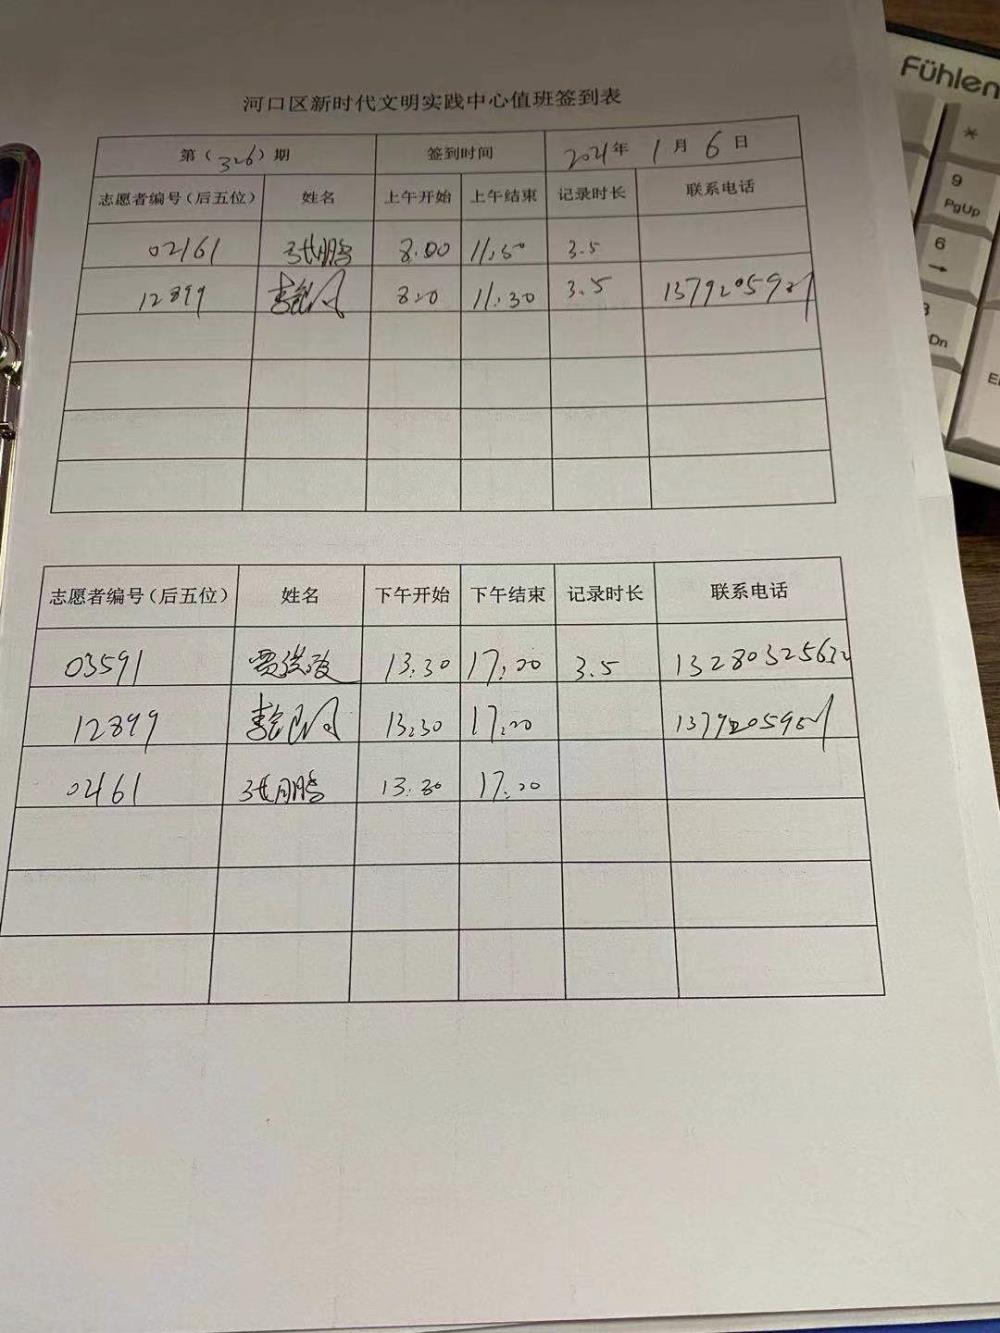 Fühlen
*
9
PgUp
6
→
河口区新时代文明实践中心值班签到表
第（326）期 签到时间 2021年 1月 6日
志愿者编号（后五位） 姓名 上午开始 上午结束 记录时长 联系电话
02161 张鹏 8:00 11:30 3.5
12899 8:00 11:30 3.5
志愿者编号（后五位） 姓名 下午开始 下午结束 记录时长 联系电话
03591 13:30 17:00 3.5
12899 13:30 17:00
02161 张鹏 13:30 17:00